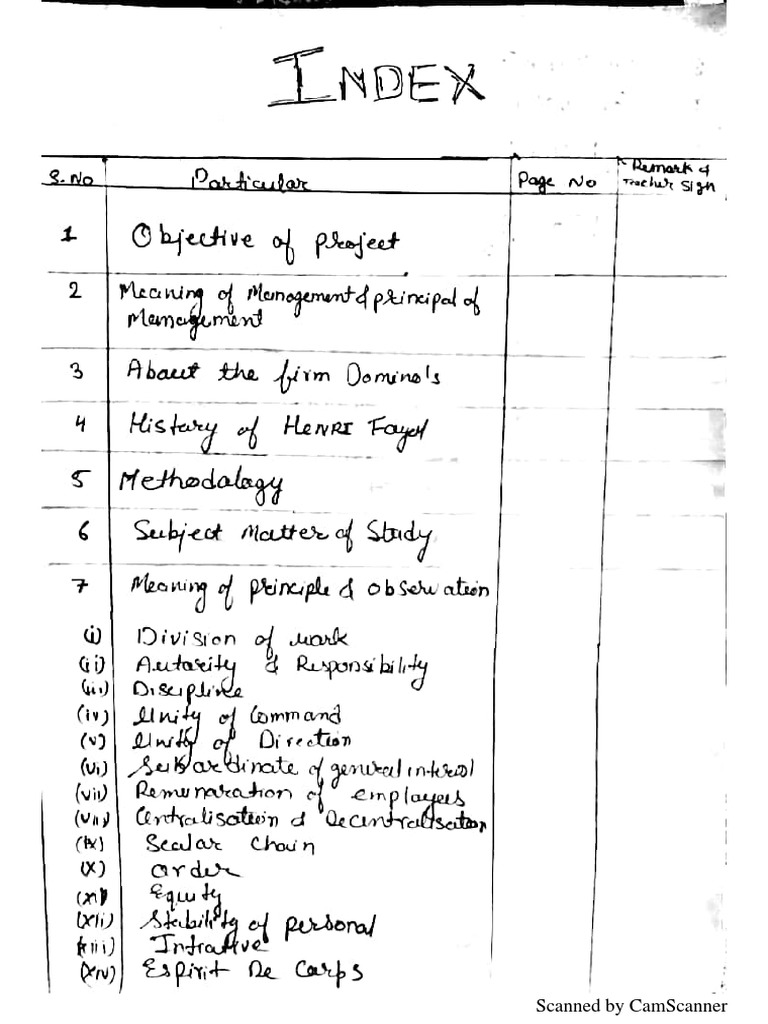 INDEX
S.No Particular Page No Remark & Teacher Sign
1 Objective of project
2 Meaning of Management & principal of
Management
3 About the firm Domino's
4 History of HENRI Fayol
5 Methodology
6 Subject Matter of Study
7 Meaning of principle & observation
(i) Division of work
(ii) Autarity & Responsibility
(iii) Discipline
(iv) Unity of Command
(v) Unity of Direction
(vi) Subordinate of general interest
(vii) Remunaration of employees
(viii) Centralisation & Decentralisation
(ix) Scalar Chain
(x) order
(xi) Equity
(xii) Stability of personal
(xiii) Intiative
(xiv) Espirit De Carps
Scanned by CamScanner